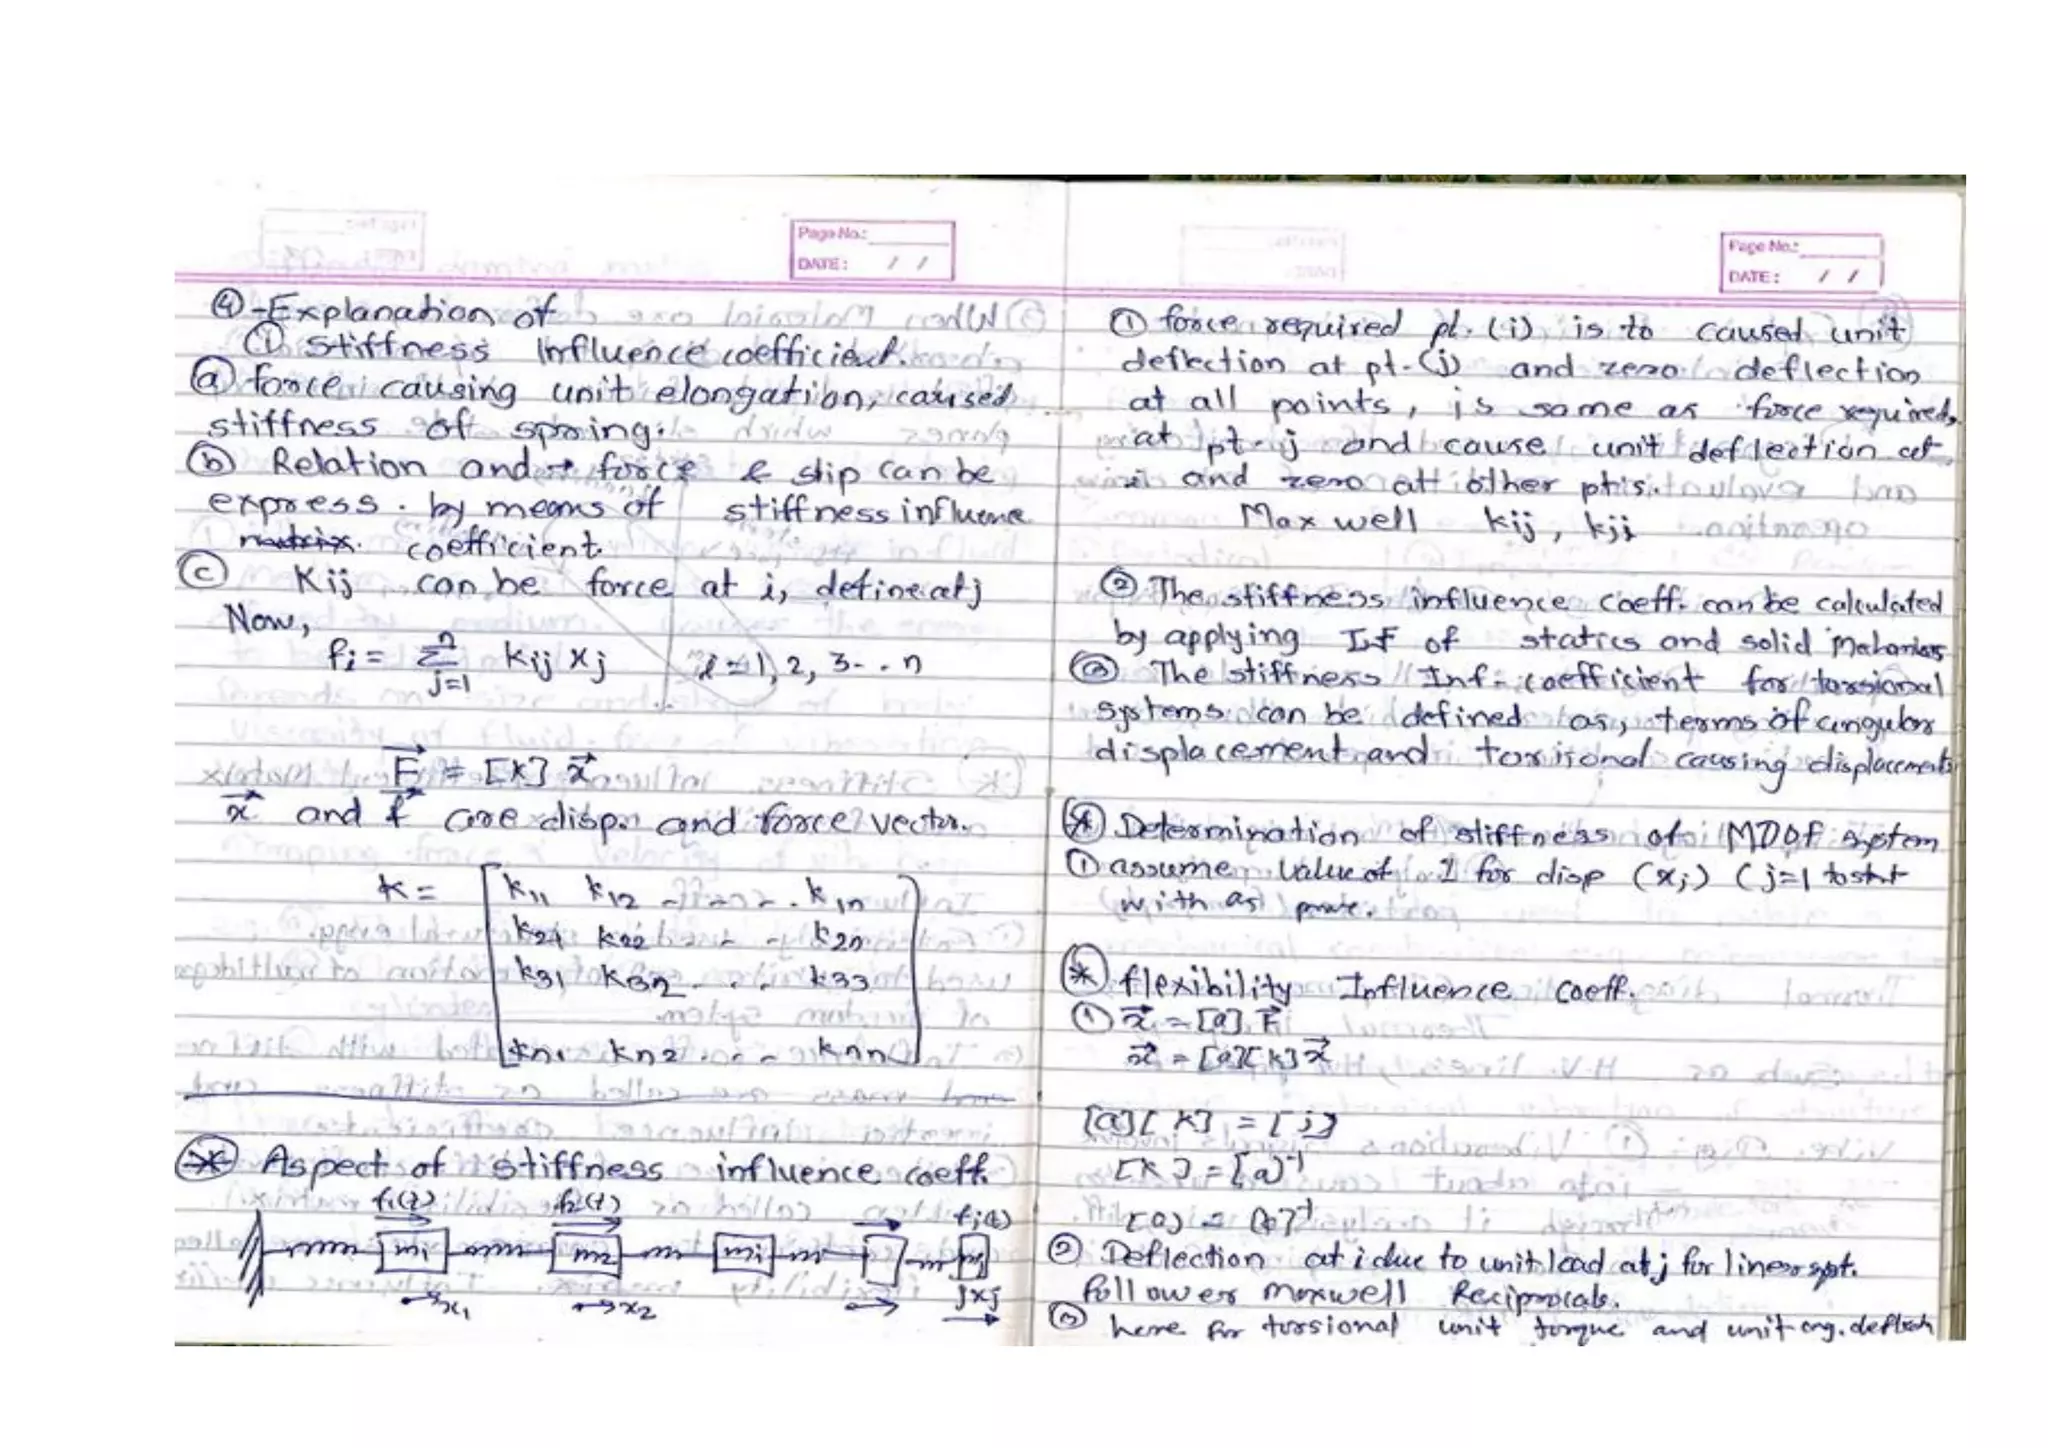 Page No.:
DATE: / /
④ Explanation of
① Stiffness Influence coefficient.
ⓐ force causing unit elongation, caused
stiffness of spring.
ⓑ Relation and force & slip can be
express. by means of stiffness influence
matrix. coefficient.
ⓒ Kij can be force at i, define at j
Now,
fi = n Σ j=1 kij xj i = 1, 2, 3 - - n
F = [K] x
x and f are disp. and force vector.
K = [ k11 k12 - - - - k1n
k21 k22 - - - k2n
k31 k32 - - - k33
kn1 kn2 - - - knn ]
* Aspect of stiffness influence coeff.
f1(t) f2(t) fj(t)
m1 m2 mi mj
x1 x2 jxj
Page No.:
DATE: / /
① force required pt. (i) is to caused unit
deflection at pt. (j) and zero deflection
at all points, is same as force required,
at pt. j and cause unit deflection at
i and zero att other pts.
Maxwell kij, kji
② The stiffness influence coeff. can be calculated
by applying of statics and solid
③ The stiffness Inf. coefficient for torsional
systems can be defined as, terms of angular
displacement and torsional causing displacements
* Determination of stiffness of MDOF system
① assume value of 1 for disp (xj) (j=1 to
with as
* flexibility Influence coeff.
① x = [a] F
x = [a][k] x
[a][K] = [i]
[K] = [a]-1
[a] = [k]-1
② Deflection at i due to unit load at j for linear syst.
follower maxwell Reciprocals.
③ here for torsional unit torque and unit ang. defletn